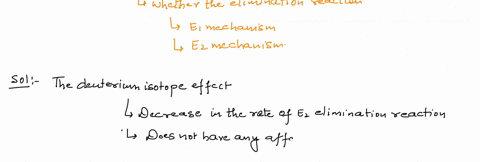 ↳ whether the elimination reaction
↳ E1 mechanism
↳ E2 mechanism.
Sol:- The deuterium isotope effect
↳ Decrease in the rate of E2 elimination reaction
↳ Does not have any aff